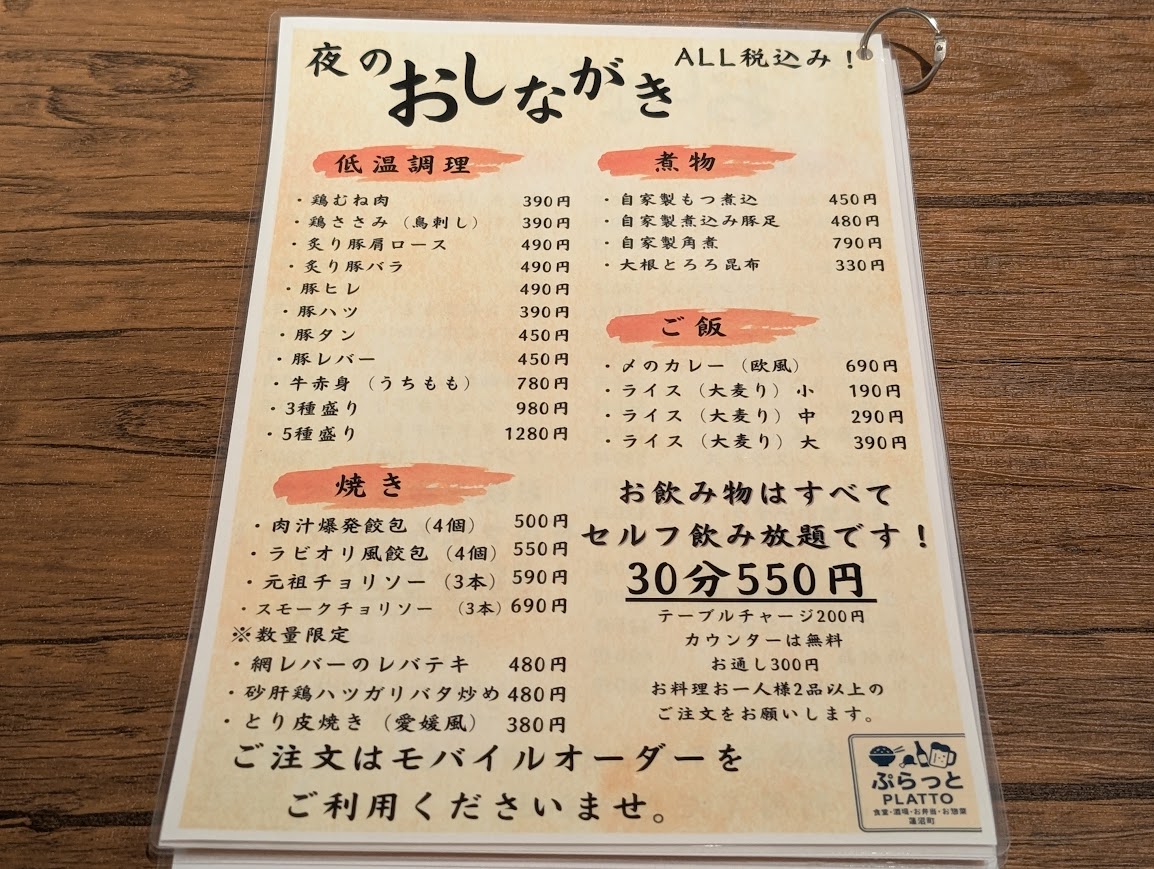 夜の おしながき
ALL税込み！
低温調理
・鶏むね肉 390円
・鶏ささみ（鳥刺し） 390円
・炙り豚肩ロース 490円
・炙り豚バラ 490円
・豚ヒレ 490円
・豚ハツ 390円
・豚タン 450円
・豚レバー 450円
・牛赤身（うちもも） 780円
・3種盛り 980円
・5種盛り 1280円
焼き
・肉汁爆発餃包（4個） 500円
・ラビオリ風餃包（4個） 550円
・元祖チョリソー（3本） 590円
・スモークチョリソー （3本） 690円
※数量限定
・網レバーのレバテキ 480円
・砂肝鶏ハツガリバタ炒め 480円
・とり皮焼き（愛媛風） 380円
煮物
・自家製もつ煮込 450円
・自家製煮込み豚足 480円
・自家製角煮 790円
・大根とろろ昆布 330円
ご飯
・〆のカレー（欧風） 690円
・ライス（大麦り）小 190円
・ライス（大麦り）中 290円
・ライス（大麦り）大 390円
お飲み物はすべて
セルフ飲み放題です！
30分550円
テーブルチャージ200円
カウンターは無料
お通し300円
お料理お一人様2品以上の
ご注文をお願いします。
ご注文はモバイルオーダーを
ご利用くださいませ。
ぷらっと
PLATTO
食堂・酒場・お弁当・お惣菜
蓮沼町